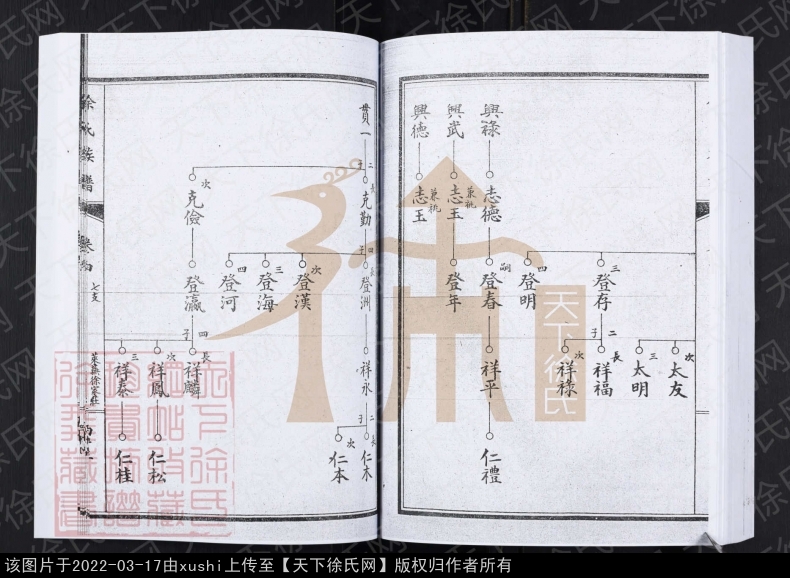 次
太友
三
太明
三
登存
二子
長
祥福
次
祥祿
四
登明
興祿
志德
嗣
登春
祥平
仁禮
興武
兼祧
志玉
登年
興德
兼祧
志玉
貫一
二子
長
克勤
四子
長
登洲
祥永
二子
長
仁木
次
仁本
次
登漢
三
登海
四
登河
次
克儉
登瀛
四子
長
祥麟
次
祥鳳
仁松
三
祥泰
仁桂
徐氏族譜
卷四
七支
萊蕪徐家莊
天下徐氏
该图片于2022-03-17由xushi上传至【天下徐氏网】版权归作者所有